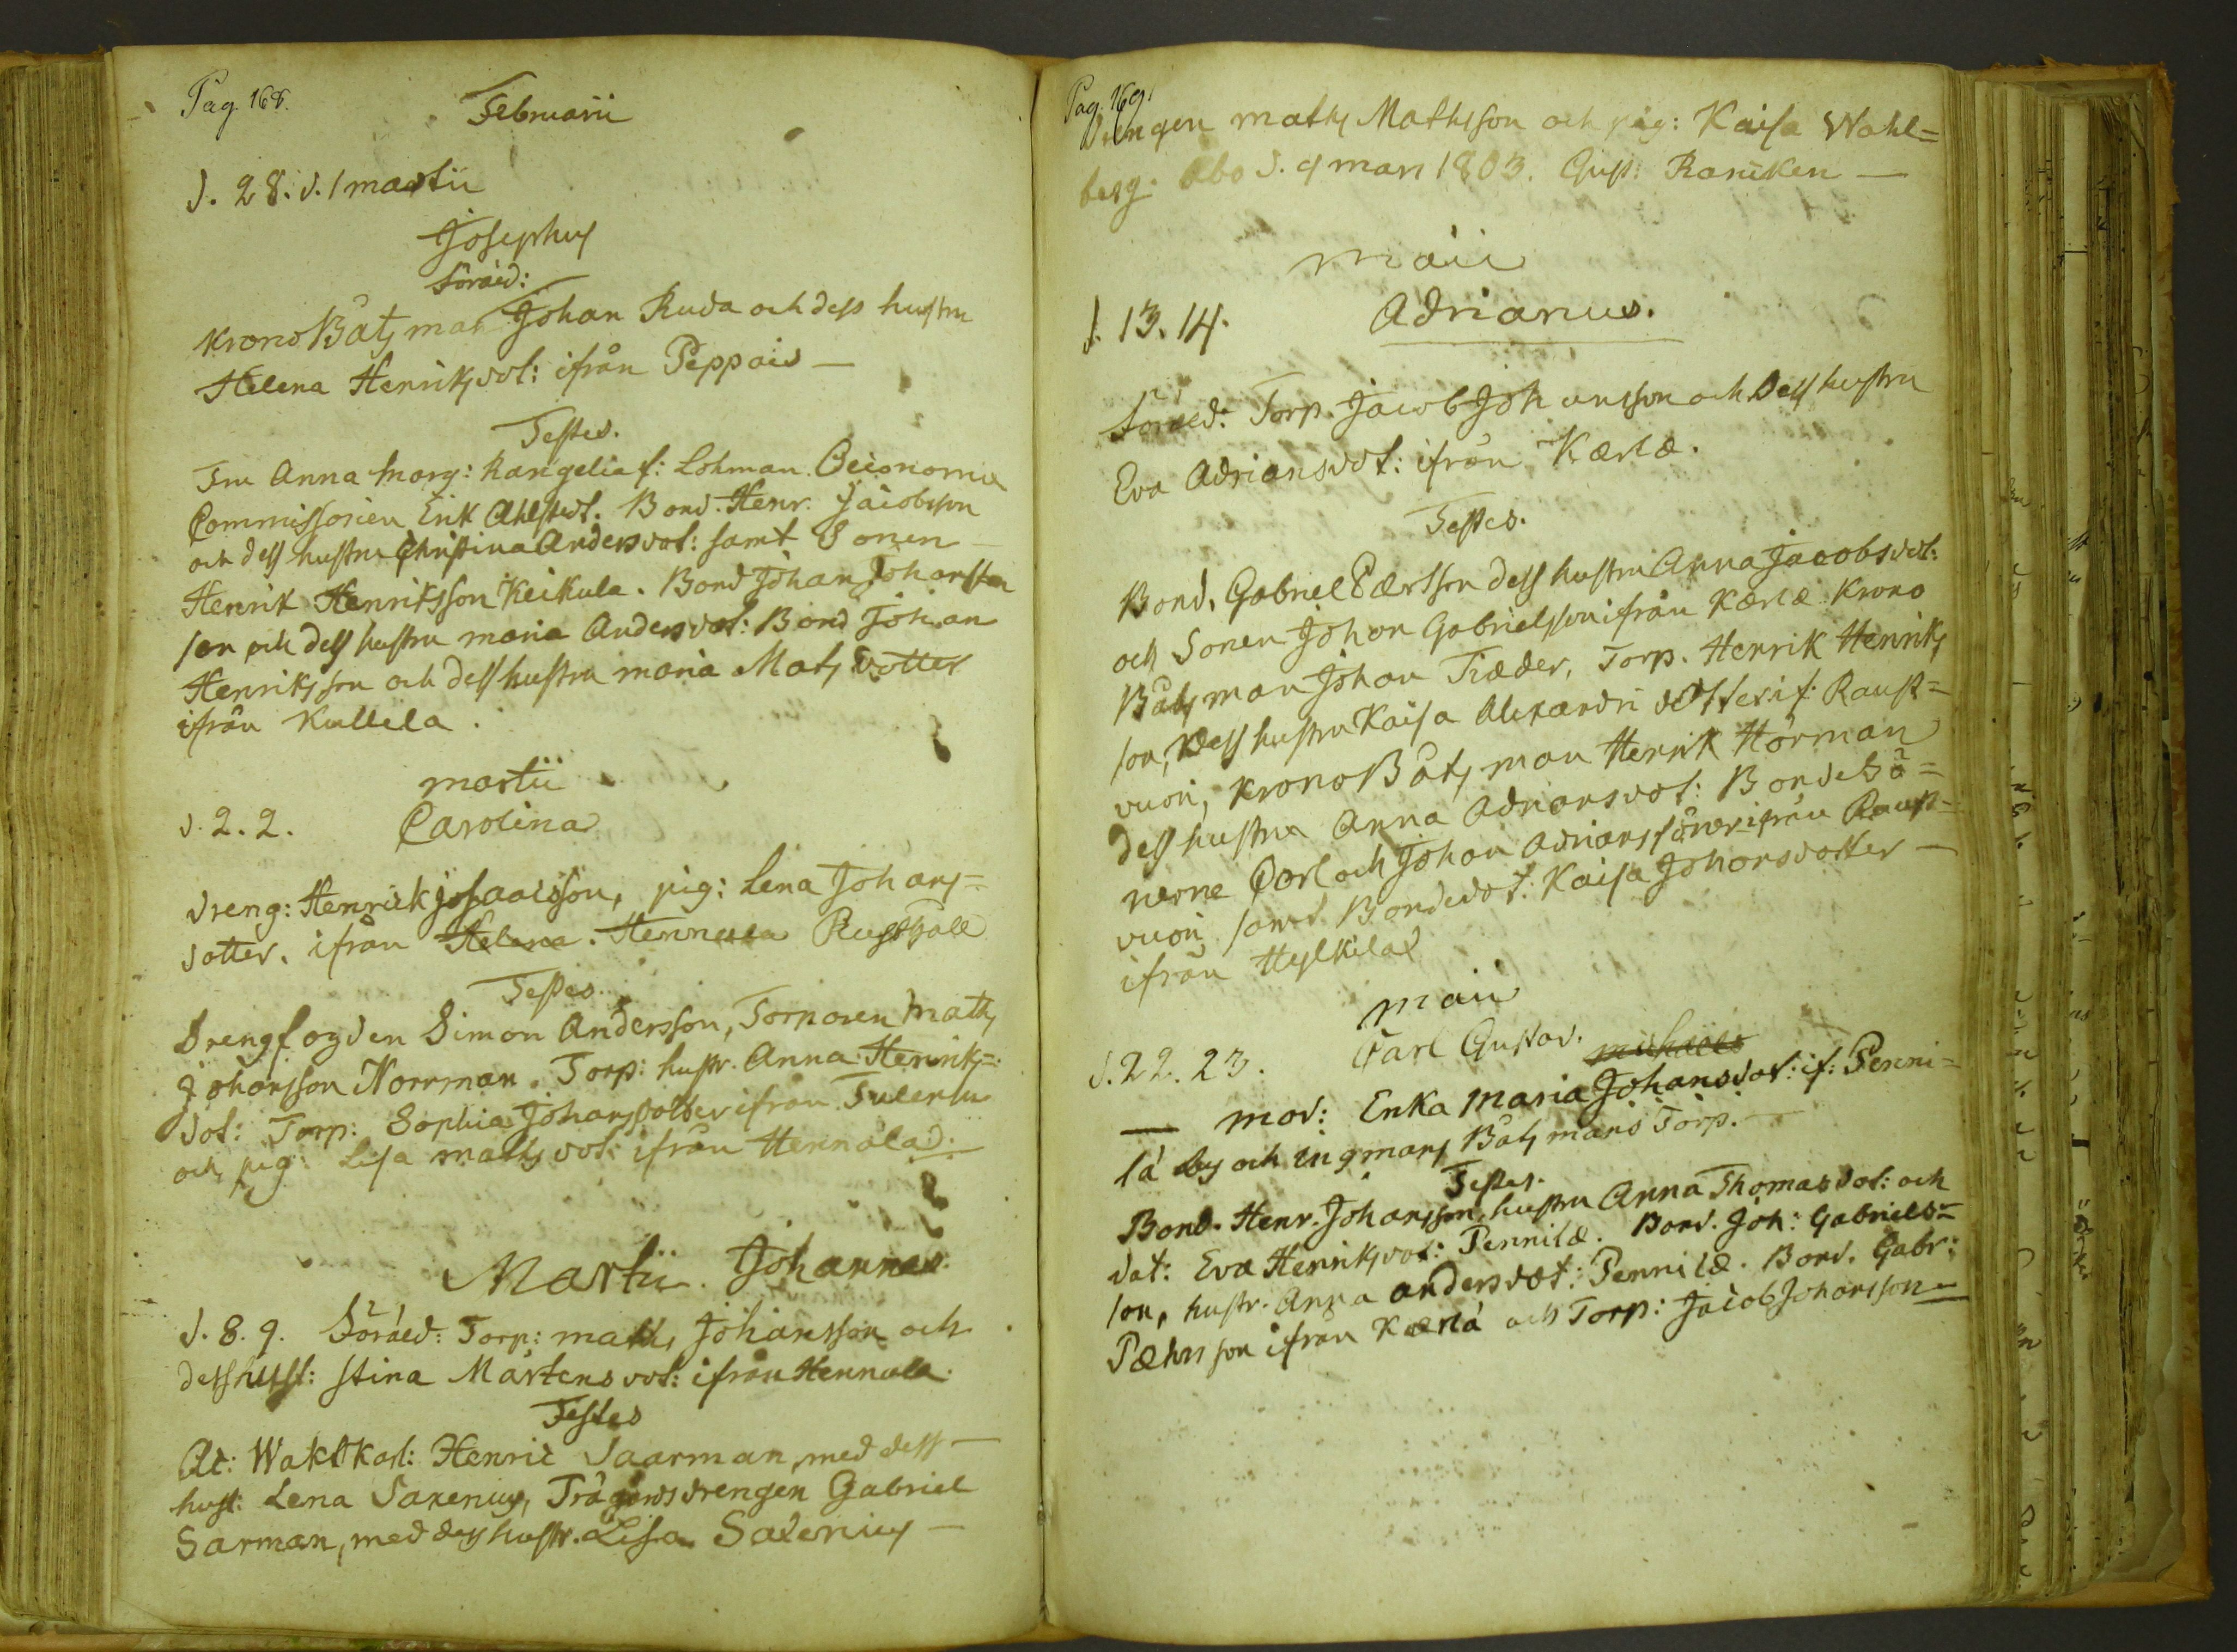 Pag. 168.
Februarii
d. 28. d. 1 martii
Josephus
Föräld:
Krono Båtsman Johan Ruda och dess hustru
Helena Henriksdot: ifrån Peppois —
Testes.
Fru Anna Marg: Rangelia f: Lohman Oeconomie
Commissarien Erik Ahlstedt. Bond. Henr. Jacobsson
och dess hustru Christina Andersdot: samt Sonen
Henrik Henriksson Keikula. Bond Johan Johans
son och dess hustru maria Andersdot: Bond Johan
Henriksson och dess hustru maria Mats dotter
ifrån Kullila.
martii
d. 2. 2. Carolina
dreng: Henrick Josaacsson, pig: Lena Johans=
dotter. ifrån Helena. Hennula Rusthåll
Testes
Drengfogden Simon Andersson, Torparen Maths
Johansson Norrman. Torp: hustr. Anna Henriks=
dot: Torp: Sophia Johansdotter ifrån
och pig: Lisa mathsdot: ifrån Hennala.
Martii. Johannes.
d. 8. 9. Föräld: Torp: maths Johansson och
dess hust: stina Mårtens dot: ifrån Hennala.
Testes
Ac: Waktkarl: Henric Saarman, med dess —
hust: Lena Saxenius, Trägårdsdrengen Gabriel
Sarman, med dess hustr. Lisa Saxenius —
Pag. 169.
Drengen maths Mathsson och pig: Kaisa Wahl=
berg. Åbo d. 9 mars 1803. Gust: Raniken —
maii
d. 13. 14. Adrianus.
Föräld: Torp. Jacob Johansson och Dess hustru
Eva Adriansdot: ifrån Kærlæ.
Testes.
Bond. Gabriel Pærsson dess hustru Anna Jacobsdot:
och Sonen Johan Gabrielsson ifrån Kærlæ Krono
Båtsman Johan Træder, Torp. Henrik Henriks
son, Dess hustru Kaisa Alexandri dotter if: Raust=
vuori, Krono Båtsman Henrik Hörman
dess hustru Anna Adriansdot: Bonde Sö=
nerne Carl och Johan Adrians söner ifrån Raust=
vuori samt Bondedot: Kaisa Johansdotter —
ifrån Hylkilä
maii
d. 22. 23. Carl Gustav.
— mod: Enka Maria Johansdot: if: Penni=
lä by och ingmans Båtsmans Torp. —
Testes.
Bond. Henr. Johansson, hustru Anna Thomasdot: och
dot: Eva Henriksdot: Pennilæ. Bond. Joh: Gabriels=
son, hustr. Anna andersdot: Pennilæ. Bond. Gabr:
Pæhrsson ifrån Kærlä och Torp: Jacob Johansson —